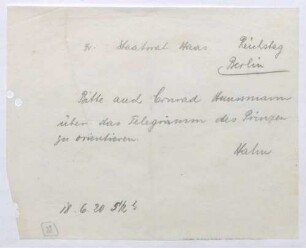 Hr. Staatsrat Haas Reichstag
Berlin
Bitte auch Conrad Haussmann
über das Telegramm des Prinzen
zu orientieren
Hahn
18. 6. 20 5½ h